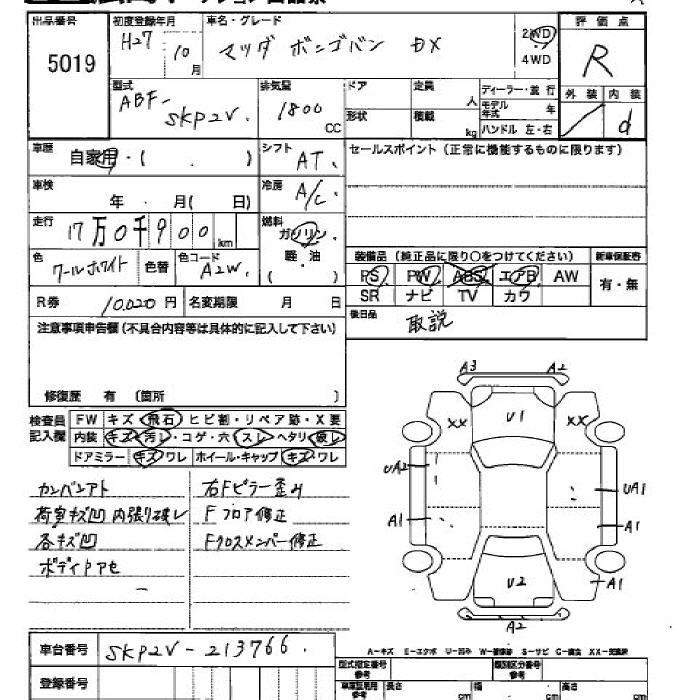 出品番号 初度登録年月 車名・グレード 評価点
5019 H27 10月 マツダ ボンゴバン DX 2WD 4WD R
型式 排気量 ドア 定員 人 ディーラー・並行 外装 内装
ABF-SKP2V 1800 CC 形状 積載 kg モデル年式 年 ハンドル 左・右 d
車歴 自家用・( ) シフト AT. セールスポイント (正常に機能するものに限ります)
車検 年 月( 日) 冷房 A/C.
走行 17万0千900km 燃料 ガソリン 軽・油 ( )
色 クールホワイト 色替 色コード A2W. 装備品 (純正品に限り○をつけてください) 新車保証書
PS PW ABS エアB AW 有・無
SR ナビ TV カワ
R券 10.020円 名変期限 月 日 後日品 取説
注意事項申告欄(不具合内容等は具体的に記入して下さい)
修復歴 有 〔箇所 〕
検査員記入欄 FW キズ 飛石 ヒビ割・リペア跡・X要
内装 キズ 汚レ・コゲ・穴 スレ ヘタリ 破レ
ドアミラー キズ ワレ ホイール・キャップ キズ・ワレ
カンバンアト 右Fピラー歪み
荷室キズ凹 内張り破レ Fフロア修正
各キズ凹 Fクロスメンバー修正
ボディPアセ
A3 A2
XX U1 XX
UA2 UA1
A1 A1
U2 A1
A2
A-キズ E-エクボ U-凹み W-補修跡 S-サビ C-腐食 XX-交換済
車台番号 SKP2V-213766.
型式指定番号 参考 類別区分番号 参考
登録番号 長さ cm 幅 cm 高さ cm